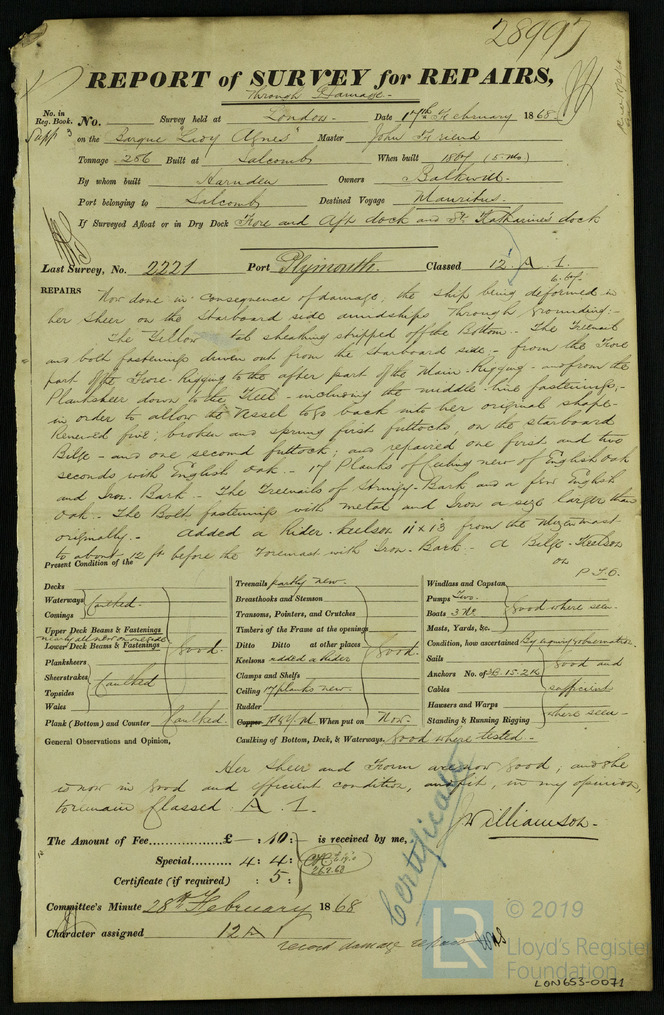 28997
REPORT of SURVEY for REPAIRS,
Through Damage.
No. in Reg. Book. No. Survey held at London Date 17th February 1868
Supp 3 on the Barque "Lady Agnes" Master John Friend
Tonnage 286 Built at Salcombe When built 1867 (5 mo)
By whom built Harnden Owners Balkwill
Port belonging to Salcombe Destined Voyage Mauritius
If Surveyed Afloat or in Dry Dock Fore and Aft dock and St. Katharine's dock
Last Survey, No. 2221 Port Plymouth Classed 12 A 1.
REPAIRS Now done in consequence of damage, the ship being deformed in
her sheer on the starboard side amidships through grounding:-
The Yellow sheathing stripped off the Bottom. The Treenail
and bolt fastenings driven out from the starboard side - from the Fore
part of the Fore Rigging to the after part of the Main Rigging - and from the
Planksheer down to the Keel - including the middle line fastenings;-
in order to allow the Vessel to go back into her original shape.
Renewed five, broken and sprung first futtocks, on the starboard
Bilge - and one second futtock; and repaired one first and two
seconds with English Oak. - 17 Planks of Ceiling new of English Oak
and Iron Bark - The Treenails of Stringy Bark and a few English
Oak - The Bolt fastenings with metal and Iron a size larger than
originally. - Added a Rider Keelson 11 x 13 from the Mizenmast
to about 12 ft before the Foremast with Iron Bark - A Bilge Keelson
on
P.T.O.
Present Condition of the
Decks
Waterways Caulked
Comings
Upper Deck Beams & Fastenings
nearly all new on one side Good
Lower Deck Beams & Fastenings
Planksheers
Sheerstrakes
Topsides Caulked
Wales
Plank (Bottom) and Counter Caulked
Treenails partly new
Breasthooks and Stemson
Transoms, Pointers, and Crutches
Timbers of the Frame at the openings
Ditto Ditto at other places Good
Keelsons added a Rider
Clamps and Shelfs
Ceiling 17 planks new
Rudder
Copper F & Y M When put on Now
Caulking of Bottom, Deck, & Waterways. Good where tested
Windlass and Capstan
Pumps Two
Boats 3 No Good where seen
Masts, Yards, &c.
Condition, how ascertained By enquiry & observation
Sails
Anchors No. of Good and
Cables sufficient
Hawsers and Warps
Standing & Running Rigging where seen
General Observations and Opinion,
Her Sheer and Form are now good, and she
is now in good and efficient condition, and fit, in my opinion,
to remain Classed A. 1.
J Williamson
Certificate
The Amount of Fee £ - : 10 : is received by me,
Special 4 : 4 :
Certificate (if required) : 5 :
Committee's Minute 28th February 1868
Character assigned 12 A 1
record damage repairs
© 2019
LR
Lloyd's Register
Foundation
LON653-0071